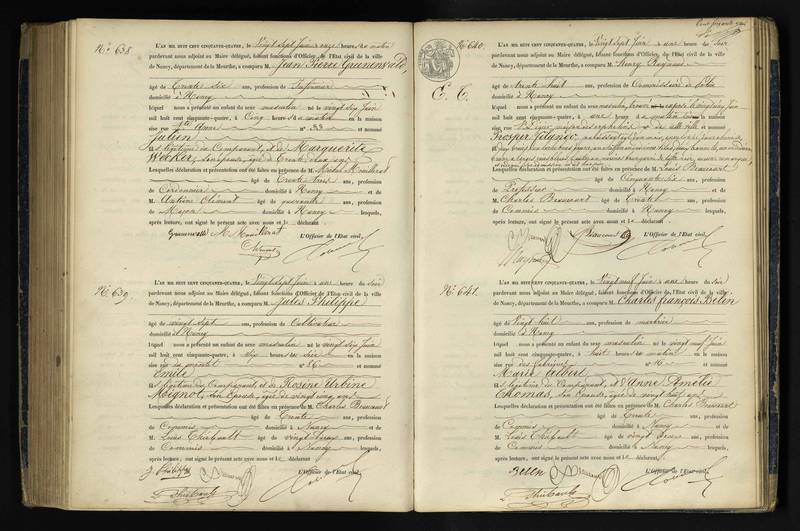 N.o 638
L'AN MIL HUIT CENT CINQUANTE-QUATRE, le Vingt Sept Juin à onze heures du matin
pardevant nous adjoint au Maire délégué, faisant fonctions d'Officier, de l'Etat civil de la ville
de Nancy, département de la Meurthe, a comparu M. Jean Pierre
âgé de Trente Six ans, profession de Infirmier
domicilié à Nancy
lequel nous a présenté un enfant du sexe masculin né le vingt six Juin
mil huit cent cinquante-quatre, à Cinq heures du matin en la maison
sise rue Ste Anne n.o 33 et nommé
Julien
fils légitime du Comparant, et de Marguerite
son épouse, âgée de Trente
Lesquelles déclaration et présentation ont été faites en présence de M.
âgé de Trente trois ans, profession
de Cordonnier domicilié à Nancy et de
M. Antoine Clément âgé de quarante ans, profession
de Maçon domicilié à Nancy lesquels,
après lecture, ont signé le présent acte avec nous et le déclarant
L'Officier de l'Etat civil,
N.o 639
L'AN MIL HUIT CENT CINQUANTE-QUATRE, le Vingt Sept Juin à une heure du Soir
pardevant nous adjoint au Maire délégué, faisant fonctions d'Officier de l'Etat civil de la ville
de Nancy, département de la Meurthe, a comparu M. Jules Philippe
âgé de vingt Sept ans, profession de Cultivateur
domicilié à Nancy
lequel nous a présenté un enfant du sexe masculin né le vingt six Juin
mil huit cent cinquante-quatre, à Six heures du Soir en la maison
sise rue n.o 86 et nommé
Emile
fils légitime du Comparant, et de Rosine Urbine
Mignot, Son épouse, âgée de vingt cinq ans
Lesquelles déclaration et présentation ont été faites en présence de M. Charles Beaucourt
âgé de Trente ans, profession
de Commis domicilié à Nancy et de
M. Louis Thiébault âgé de vingt deux ans, profession
de Commis domicilié à Nancy lesquels,
après lecture, ont signé le présent acte avec nous et le déclarant
J. Philippe
L'Officier de l'Etat civil,
N.o 640
L'AN MIL HUIT CENT CINQUANTE-QUATRE, le Vingt Sept Juin à une heure du Soir
pardevant nous adjoint au Maire délégué, faisant fonctions d'Officier, de l'Etat civil de la ville
de Nancy, département de la Meurthe, a comparu M. Henry
âgé de trente huit ans, profession de Commissaire de Police
domicilié à Nancy
E. T.
lequel nous a présenté un enfant du sexe masculin, trouvé exposé
mil huit cent cinquante-quatre, à une heure du matin
sise rue et nommé
Prosper
Lesquelles déclaration et présentation ont été faites en présence de M. Louis Beaucourt
âgé de Cinquante six ans, profession
de Professeur domicilié à Nancy et de
M. Charles Beaucourt âgé de Trente ans, profession
de Commis domicilié à Nancy lesquels,
après lecture, ont signé le présent acte avec nous et le déclarant
Beaucourt
L'Officier de l'Etat civil,
N.o 641
L'AN MIL HUIT CENT CINQUANTE-QUATRE, le Vingt neuf Juin à une heure du Soir
pardevant nous adjoint au Maire délégué, faisant fonctions d'Officier de l'Etat civil de la ville
de Nancy, département de la Meurthe, a comparu M. Charles François Belin
âgé de Vingt huit ans, profession de
domicilié à Nancy
lequel nous a présenté un enfant du sexe masculin né le vingt neuf Juin
mil huit cent cinquante-quatre, à huit heures du matin en la maison
sise rue des Fabriques n.o 16 et nommé
Marie Albert
fils légitime du Comparant, et d'Anne Amélie
Thomas, Son épouse, âgée de vingt huit ans
Lesquelles déclaration et présentation ont été faites en présence de M. Charles Beaucourt
âgé de Trente ans, profession
de Commis domicilié à Nancy et de
M. Louis Thiébault âgé de vingt deux ans, profession
de Commis domicilié à Nancy lesquels,
après lecture, ont signé le présent acte avec nous et le déclarant
Belin
L'Officier de l'Etat civil,